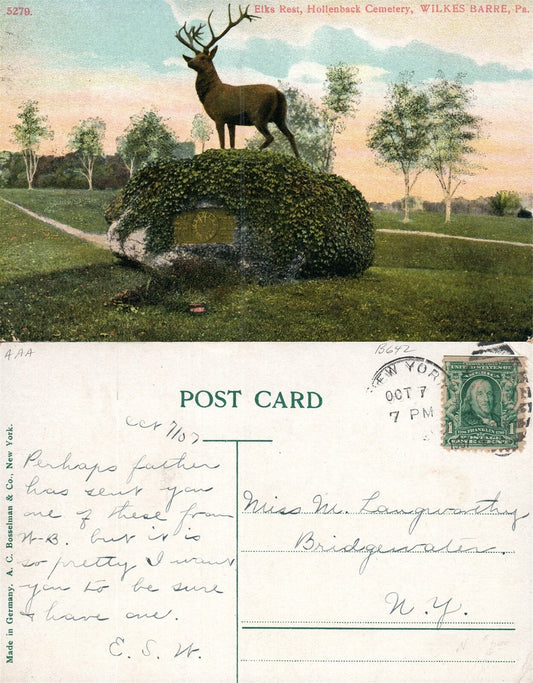 5279.
Elks Rest, Hollenback Cemetery, WILKES BARRE, Pa.
AAA
B642
POST CARD
NEW YORK
OCT 7
7 PM
UNITED STATES OF AMERICA
FRANKLIN
1 POSTAGE 1
ONE CENT
Made in Germany. A. C. Bosselman & Co., New York.
Oct 7/07
Perhaps father
has sent you
one of these from
W-B. but it is
so pretty I want
you to be sure
& have one.
E. S. W.
Miss M. Langworthy
Bridgewater.
N. Y.